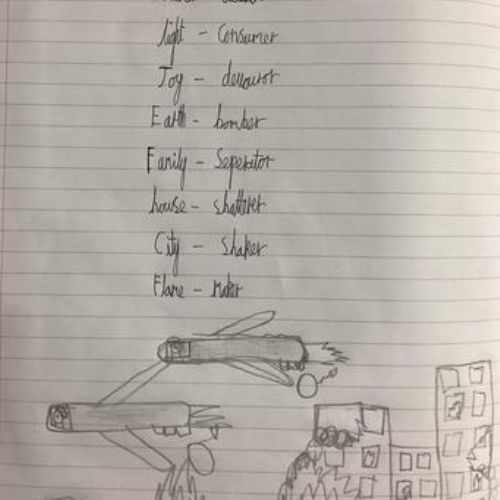 light - Consumer
Joy - devouror
Earth - bomber
Family - Seperator
house - shatterer
City - Shaker
Flame - Maker